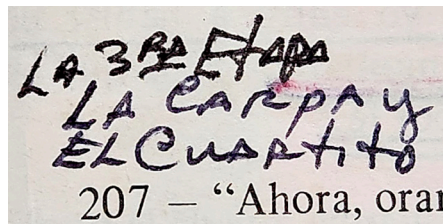 LA 3RA Etapa
LA CARPA y
EL CUARtito
207 – “Ahora, orar